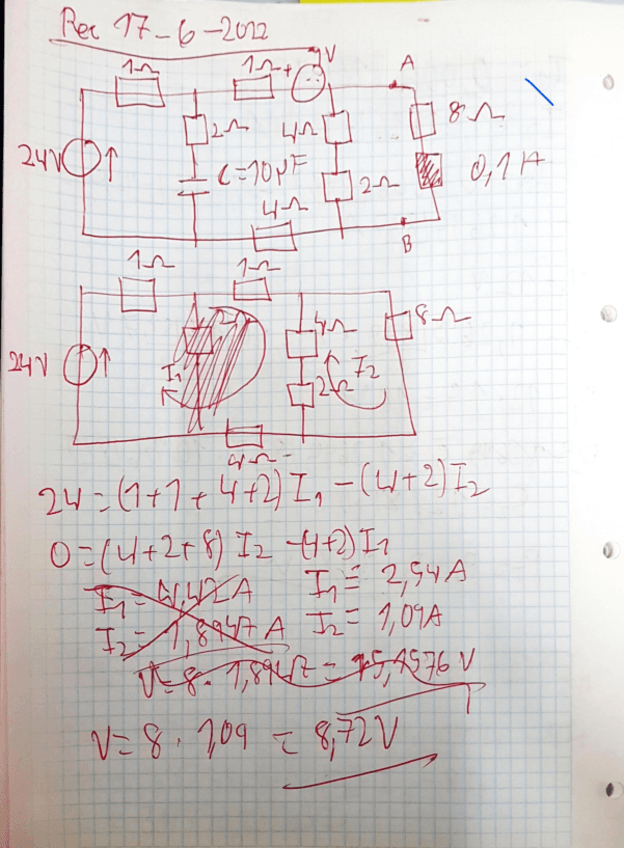 Rec 17-6-2022
1Ω 1Ω + V A
2Ω 4Ω 8Ω
24V C=10μF 2Ω 0,1A
4Ω
B
1Ω 1Ω
4Ω 8Ω
24V I₁ 2Ω I₂
4Ω
24=(1+1+4+2)I₁-(4+2)I₂
0=(4+2+8)I₂-(4+2)I₁
I₁=4,42A I₁=2,54A
I₂=1,8947A I₂=1,09A
V=8·1,8947=15,1576V
V=8·1,09=8,72V